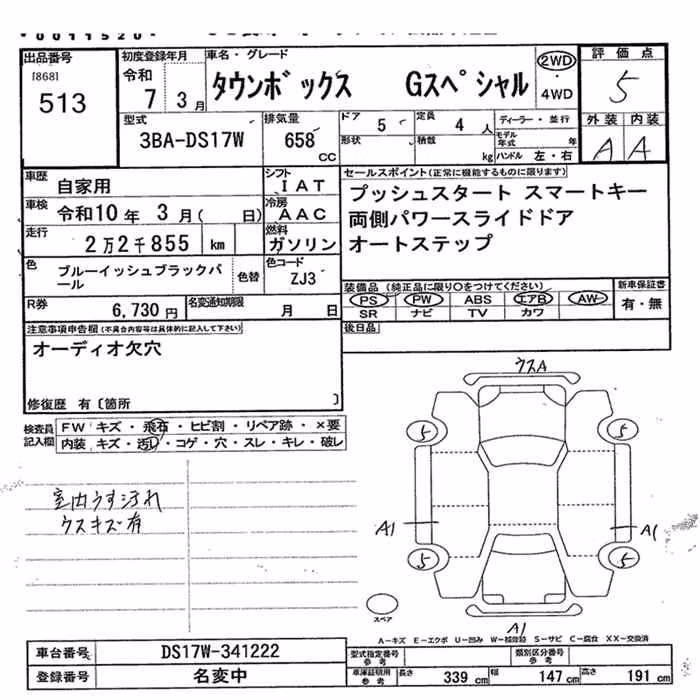 出品番号
[868]
513
初度登録年月
令和
7 3月
車名・グレード
タウンボックス Gスペシャル
2WD
・
4WD
評価点
5
外装 内装
A A
型式
3BA-DS17W
排気量
658
CC
ドア
5
定員
4 人
形状
積数
kg
ディーラー・並行
モデル年式 年
ハンドル 左・右
車歴
自家用
シフト
IAT
車検
令和10年 3月( 日)
冷房
AAC
走行
2万2千855 km
燃料
ガソリン
色
ブルーイッシュブラックパール
色替
色コード
ZJ3
R券
6,730円
名変通知期限
月 日
セールスポイント(正常に機能するものに限ります)
プッシュスタート スマートキー
両側パワースライドドア
オートステップ
装備品(純正品に限り○をつけてください)
PS PW ABS エアB AW
SR ナビ TV カワ
新車保証書
有・無
後日品
注意事項申告欄(不具合内容等は具体的に記入して下さい)
オーディオ欠穴
修復歴 有〔箇所 〕
検査員
記入欄
FW キズ・飛石・ヒビ割・リペア跡・×要
内装 キズ・汚れ・コゲ・穴・スレ・キレ・破レ
室内うす汚れ
ウスキズ有
ウスA
5 5
A1 A1
5 5
スペア
A1
A-キズ E-エクボ U-凹み W-補修跡 S-サビ C-腐食 XX-交換済
車台番号
DS17W-341222
登録番号
名変中
型式指定番号
参考
類別区分番号
参考
車庫証明用
参考
長さ 339 cm 幅 147 cm 高さ 191 cm